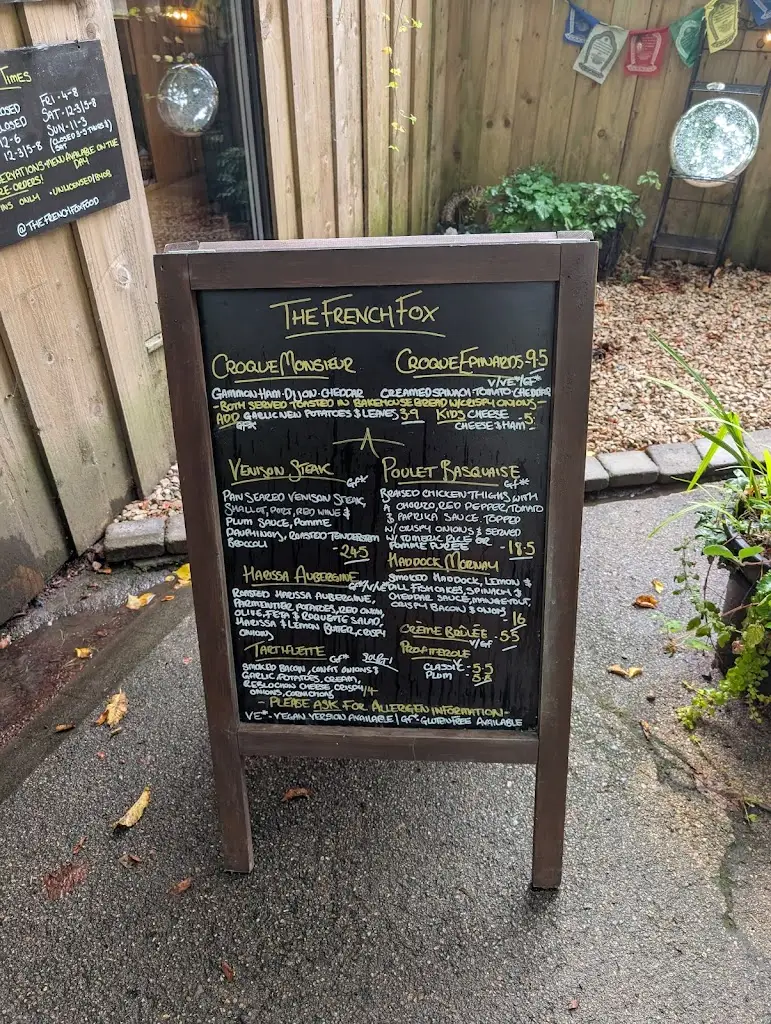 TIMES
FRI - 4-8
SAT - 12-3|5-8
SUN - 11-3
12-6
12-3|5-8
MENU AVAILABLE ON THE
DAY
UNLICENSED/BYOB
@THEFRENCHFOXFOOD
THE FRENCH FOX
CROQUE MONSIEUR
CROQUE EPINARDS - 9.5
V/VE*/GF*
GAMMON HAM · DIJON · CHEDDAR
CREAMED SPINACH · TOMATO · CHEDDAR
- BOTH SERVED TOASTED IN BAKEHOUSE BREAD W/CRISPY ONIONS -
ADD GARLIC NEW POTATOES & LEAVES 3.9
KIDS CHEESE
CHEESE & HAM - 5
VENISON STEAK GF*
PAN SEARED VENISON STEAK,
SHALLOT, PORT, RED WINE &
PLUM SAUCE, POMME
DAUPHINOIS, ROASTED TENDERSTEM
BROCCOLI
- 24.5
POULET BASQUAISE
GF*
BRAISED CHICKEN THIGHS WITH
A CHORIZO, RED PEPPER, TOMATO
& PAPRIKA SAUCE. TOPPED
W/ CRISPY ONIONS & SERVED
W/ TUMERIC RICE OR
POMME PUREE - 18.5
HARISSA AUBERGINE
ROASTED HARISSA AUBERGINE,
PARMENTIER POTATOES, RED ONION
OLIVE, FETA & ROQUETTE SALAD,
HARISSA & LEMON BUTTER, CRISPY
ONIONS
HADDOCK MORNAY
SMOKED HADDOCK, LEMON &
DILL FISHCAKES, SPINACH &
CHEDDAR SAUCE, MANGETOUT,
CRISPY BACON & ONIONS
16
TARTIFLETTE
GF*
SMOKED BACON, CONFIT ONIONS &
GARLIC POTATOES, CREAM,
REBLOCHON CHEESE, CRISPY
ONIONS, CORNICHONS
14
CRÈME BRÛLÉE - 5.5
V/GF
PROFITEROLE
CLASSIC - 5.5
PLUM
- PLEASE ASK FOR ALLERGEN INFORMATION -
VE* - VEGAN VERSION AVAILABLE | GF* GLUTEN FREE AVAILABLE